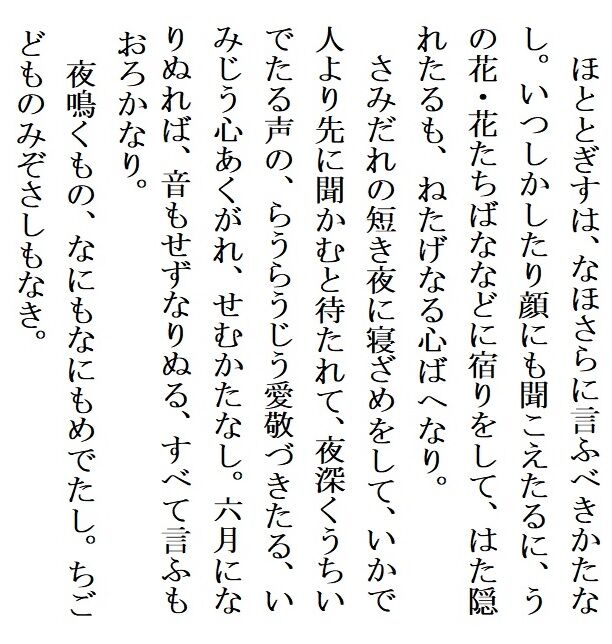 ほととぎすは、なほさらに言ふべきかたな
し。いつしかしたり顔にも聞こえたるに、う
の花・花たちばななどに宿りをして、はた隠
れたるも、ねたげなる心ばへなり。
さみだれの短き夜に寝ざめをして、いかで
人より先に聞かむと待たれて、夜深くうちい
でたる声の、らうらうじう愛敬づきたる、い
みじう心あくがれ、せむかたなし。六月にな
りぬれば、音もせずなりぬる、すべて言ふも
おろかなり。
夜鳴くもの、なにもなにもめでたし。ちご
どものみぞさしもなき。